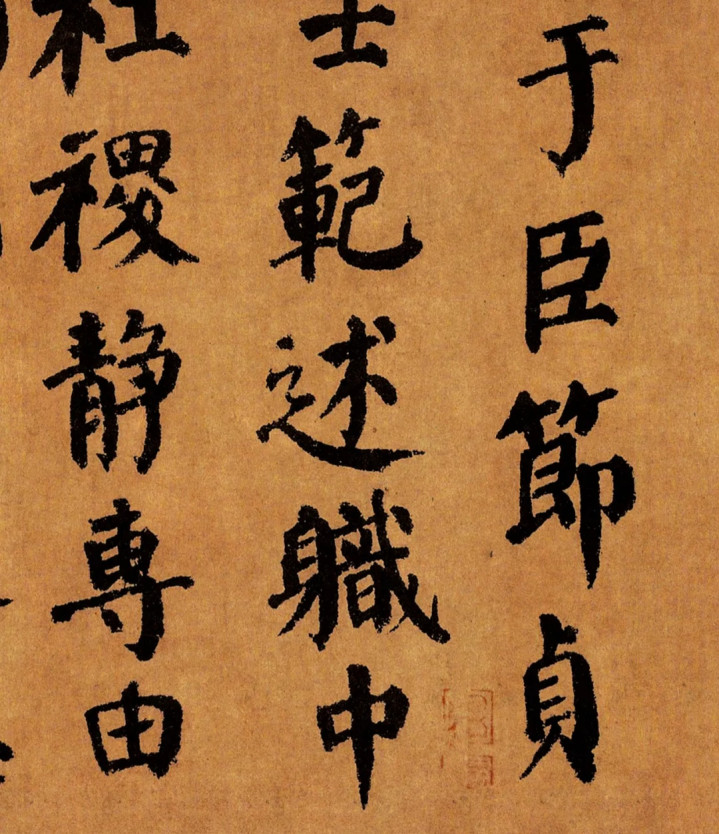 于臣節貞
士範述軄中
社稷静專由